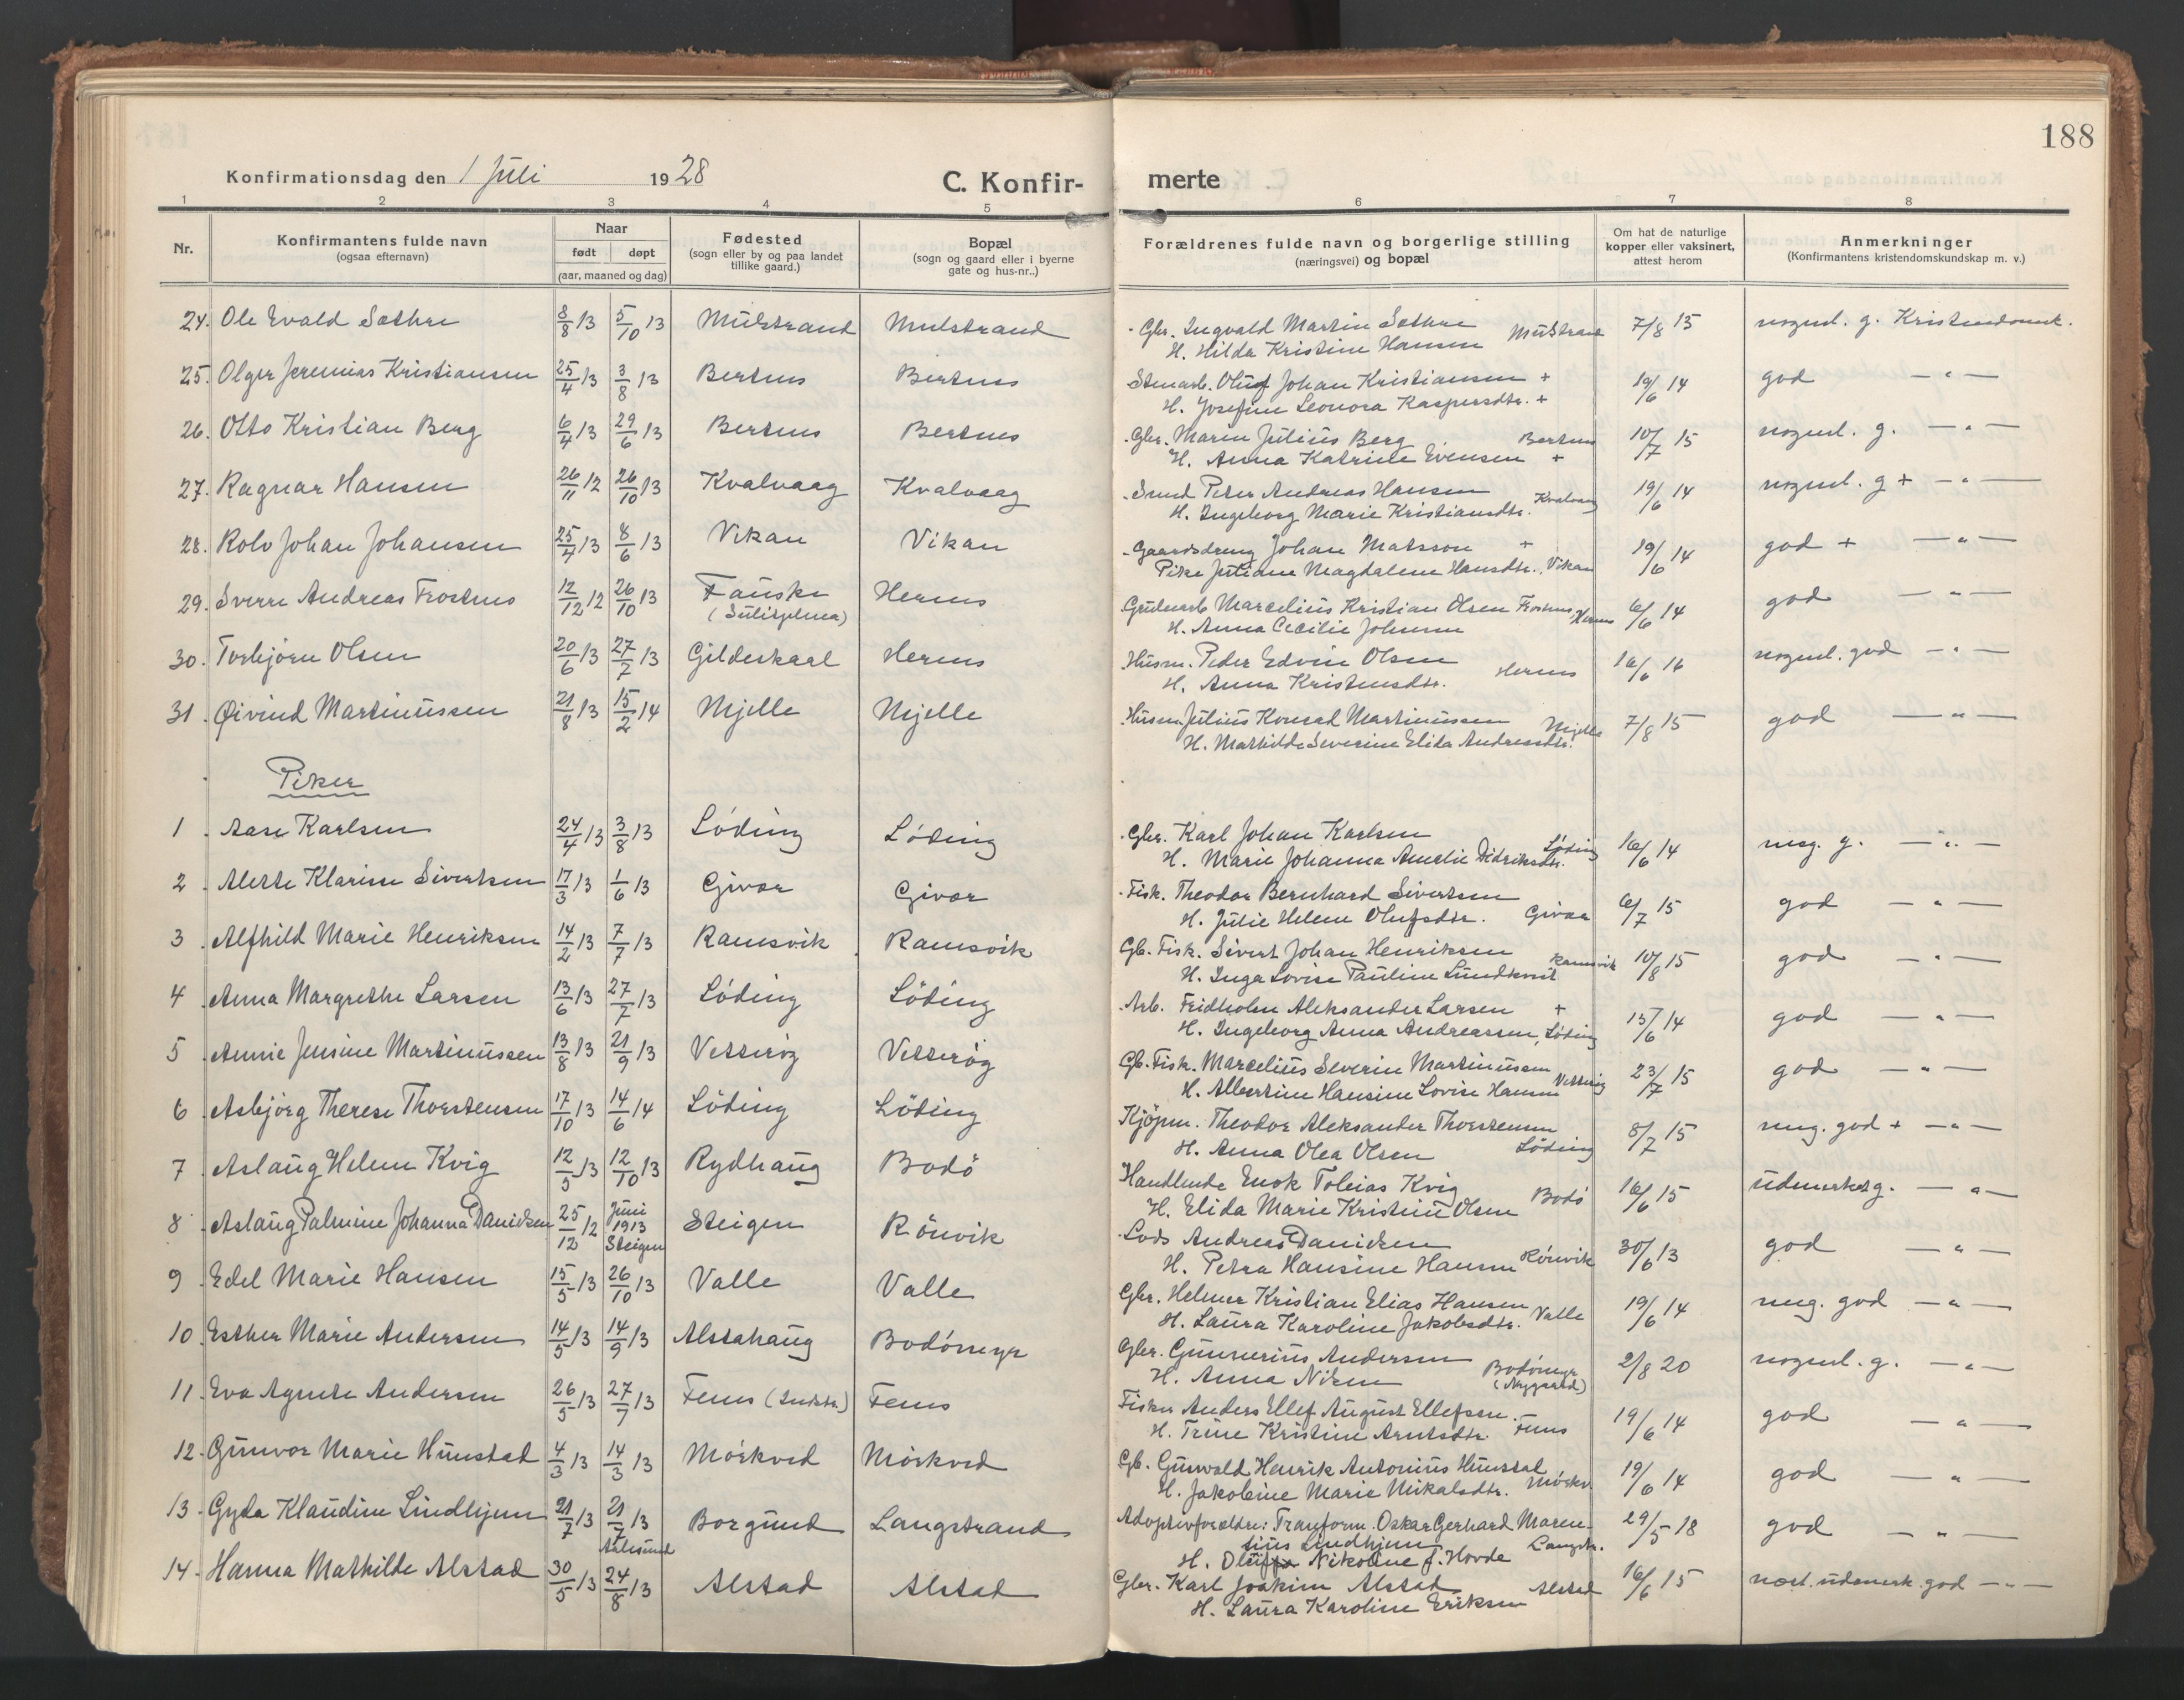 188
Konfirmationsdag den 1 Juli 1928
C. Konfir- merte
1 2 3 4 5 6 7 8
Nr.
Konfirmantens fulde navn
(ogsaa efternavn)
Naar
født døpt
(aar, maaned og dag)
Fødested
(sogn eller by og paa landet
tillike gaard.)
Bopæl
(sogn og gaard eller i byerne
gate og hus-nr..)
Forældrenes fulde navn og borgerlige stilling
(næringsvei) og bopæl
Om hat de naturlige
kopper eller vaksinert,
attest herom
Anmerkninger
(Konfirmantens kristendomskundskap m. v.)
24. Ole Evald Sæthre 8/8 13 5/10 13 Mulstrand Mulstrand Gbr. Ingvald Martin Sæthre Mulstrand 7/8 15 nogenl. g. Kristendomsk.
H. Hilda Kristine Hansen
25. Olger Jeremias Kristiansen 25/4 13 3/8 13 Bertnes Bertnes Stenarb. Oluf Johan Kristiansen + 19/6 14 god — " —
H. Josefine Leonora Kaspersdtr. +
26. Otto Kristian Berg 6/4 13 29/6 13 Bertnes Bertnes Gbr. Marin Julius Berg Bertnes 10/7 15 nogenl. g. — " —
H. Anna Katrine Evensen +
27. Ragnar Hansen 26/11 12 26/10 13 Kvalvaag Kvalvaag Smed Peter Andreas Hansen Kvalvaag 19/6 14 nogenl. g + — " —
H. Ingeborg Marie Kristiansdtr.
28. Rolv Johan Johansen 25/4 13 8/6 13 Vikan Vikan Gaardsdreng Johan Matsson + 19/6 14 god + — " —
Pike Juliane Magdalene Hansdtr., Vikan
29. Sverre Andreas Frostnes 12/12 12 26/10 13 Fauske Hernes Grubearb Marcelius Kristian Olsen Frostnes, Hernes 6/6 14 god — " —
(Sulitjelma) H. Anna Cecilie Johnsen
30. Torbjørn Olsen 20/6 13 27/7 13 Gildeskaal Hernes Husm. Peder Edvin Olsen Hernes 16/6 16 nogenl. god — " —
H. Anna Kristensdtr.
31. Øivind Martinussen 21/8 13 15/2 14 Mjelle Mjelle Husm. Julius Konrad Martinussen Mjelle 7/8 15 god — " —
H. Mathilde Severine Elida Andreasdtr.
Piker
1. Aase Karlsen 24/4 13 3/8 13 Löding Löding Gbr. Karl Johan Karlsen Löding 16/6 14 nog. g. — " —
H. Marie Johanna Amelie Didriksdtr.
2. Alette Klarisse Sivertsen 17/3 13 1/6 13 Givær Givær Fisk. Theodor Bernhard Sivertsen 6/7 15 god — " —
H. Julie Helene Olufsdtr. Givær
3. Alfhild Marie Henriksen 14/2 13 7/7 13 Ramsvik Ramsvik Gb. Fisk. Sivert Johan Henriksen Ramsvik 10/8 15 god — " —
H. Inga Lovise Pauline Lundkvist
4. Anna Margrethe Larsen 13/6 13 27/7 13 Löding Löding Arb. Fridholm Aleksander Larsen + 15/6 14 god — " —
H. Ingeborg Anna Andreassen, Löding
5. Annie Jensine Martinussen 13/8 13 21/9 13 Vetteröy Vetteröy Gb. Fisk. Marcelius Severin Martinussen Vetteröy 23/7 15 god — " —
H. Albertine Hansine Lovise Hansen
6. Asbjörg Therese Thorstensen 17/10 13 14/6 14 Löding Löding Kjöpm. Theodor Aleksander Thorstensen 8/7 15 nog. god + — " —
H. Anna Olea Olsen Löding
7. Aslaug Helene Kvig 12/5 13 12/10 13 Rydhaug Bodö Handlende Enok Tobias Kvig Bodö 16/6 15 udmerket g. — " —
H. Elida Marie Kristine Olsen
8. Aslaug Palmine Johanna Danielsen 25/12 12 Juni 1913 Steigen Steigen Rönvik Lods Andreas Danielsen Rönvik 30/6 13 god — " —
H. Petra Hansine Hansen
9. Edel Marie Hansen 15/5 13 26/10 13 Valle Valle Gbr. Helmer Kristian Elias Hansen Valle 19/6 14 nog. god — " —
H. Laura Karoline Jakobsdtr.
10. Esther Marie Andersen 14/5 13 14/9 13 Alstahaug Bodömyr Gbr. Gunnerius Andersen Bodömyr 2/8 20 nogenl. g. — " —
H. Anna Nilsen (Nygaard)
11. Eva Agnete Andersen 26/5 13 27/7 13 Fenes (Indstr.) Fenes Fisker Anders Ellef August Ellefsen 19/6 14 god — " —
H. Trine Kristine Arntsdtr. Fenes
12. Gunvor Marie Hunstad 4/3 13 14/3 13 Mörkved Mörkved Gb. Gunvald Henrik Antonius Hunstad Mörkv. 19/6 14 god — " —
H. Jakobine Marie Mikalsdtr.
13. Gyda Klaudine Lindhjem 21/7 13 21/7 13 Aalesund Borgund Langstrand Adoptivforældre: Tranform. Oskar Gerhard Maren- 29/5 18 god — " —
tius Lindhjem Langstr.
H. Nikoline f. Hovde
14. Hanna Mathilde Alstad 30/5 13 24/8 13 Alstad Alstad Gbr. Karl Joakim Alstad Alstad 16/6 15 næst. udmerk. god — " —
H. Laura Karoline Eriksen